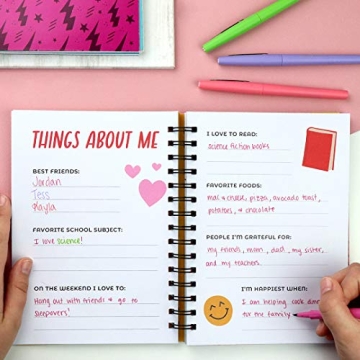 THINGS ABOUT ME
BEST FRIENDS:
Jordan
Tess
Kayla
FAVORITE SCHOOL SUBJECT:
I love science!
ON THE WEEKEND I LOVE TO:
Hang out with friends & go to
sleepovers!
I LOVE TO READ:
science fiction books
FAVORITE FOODS:
mac & cheese, pizza, avocado toast,
potatoes, & chocolate
PEOPLE I'M GRATEFUL FOR:
my friends, mom, dad, my sister,
and my teachers
I'M HAPPIEST WHEN:
I am helping cook dinner
for the family